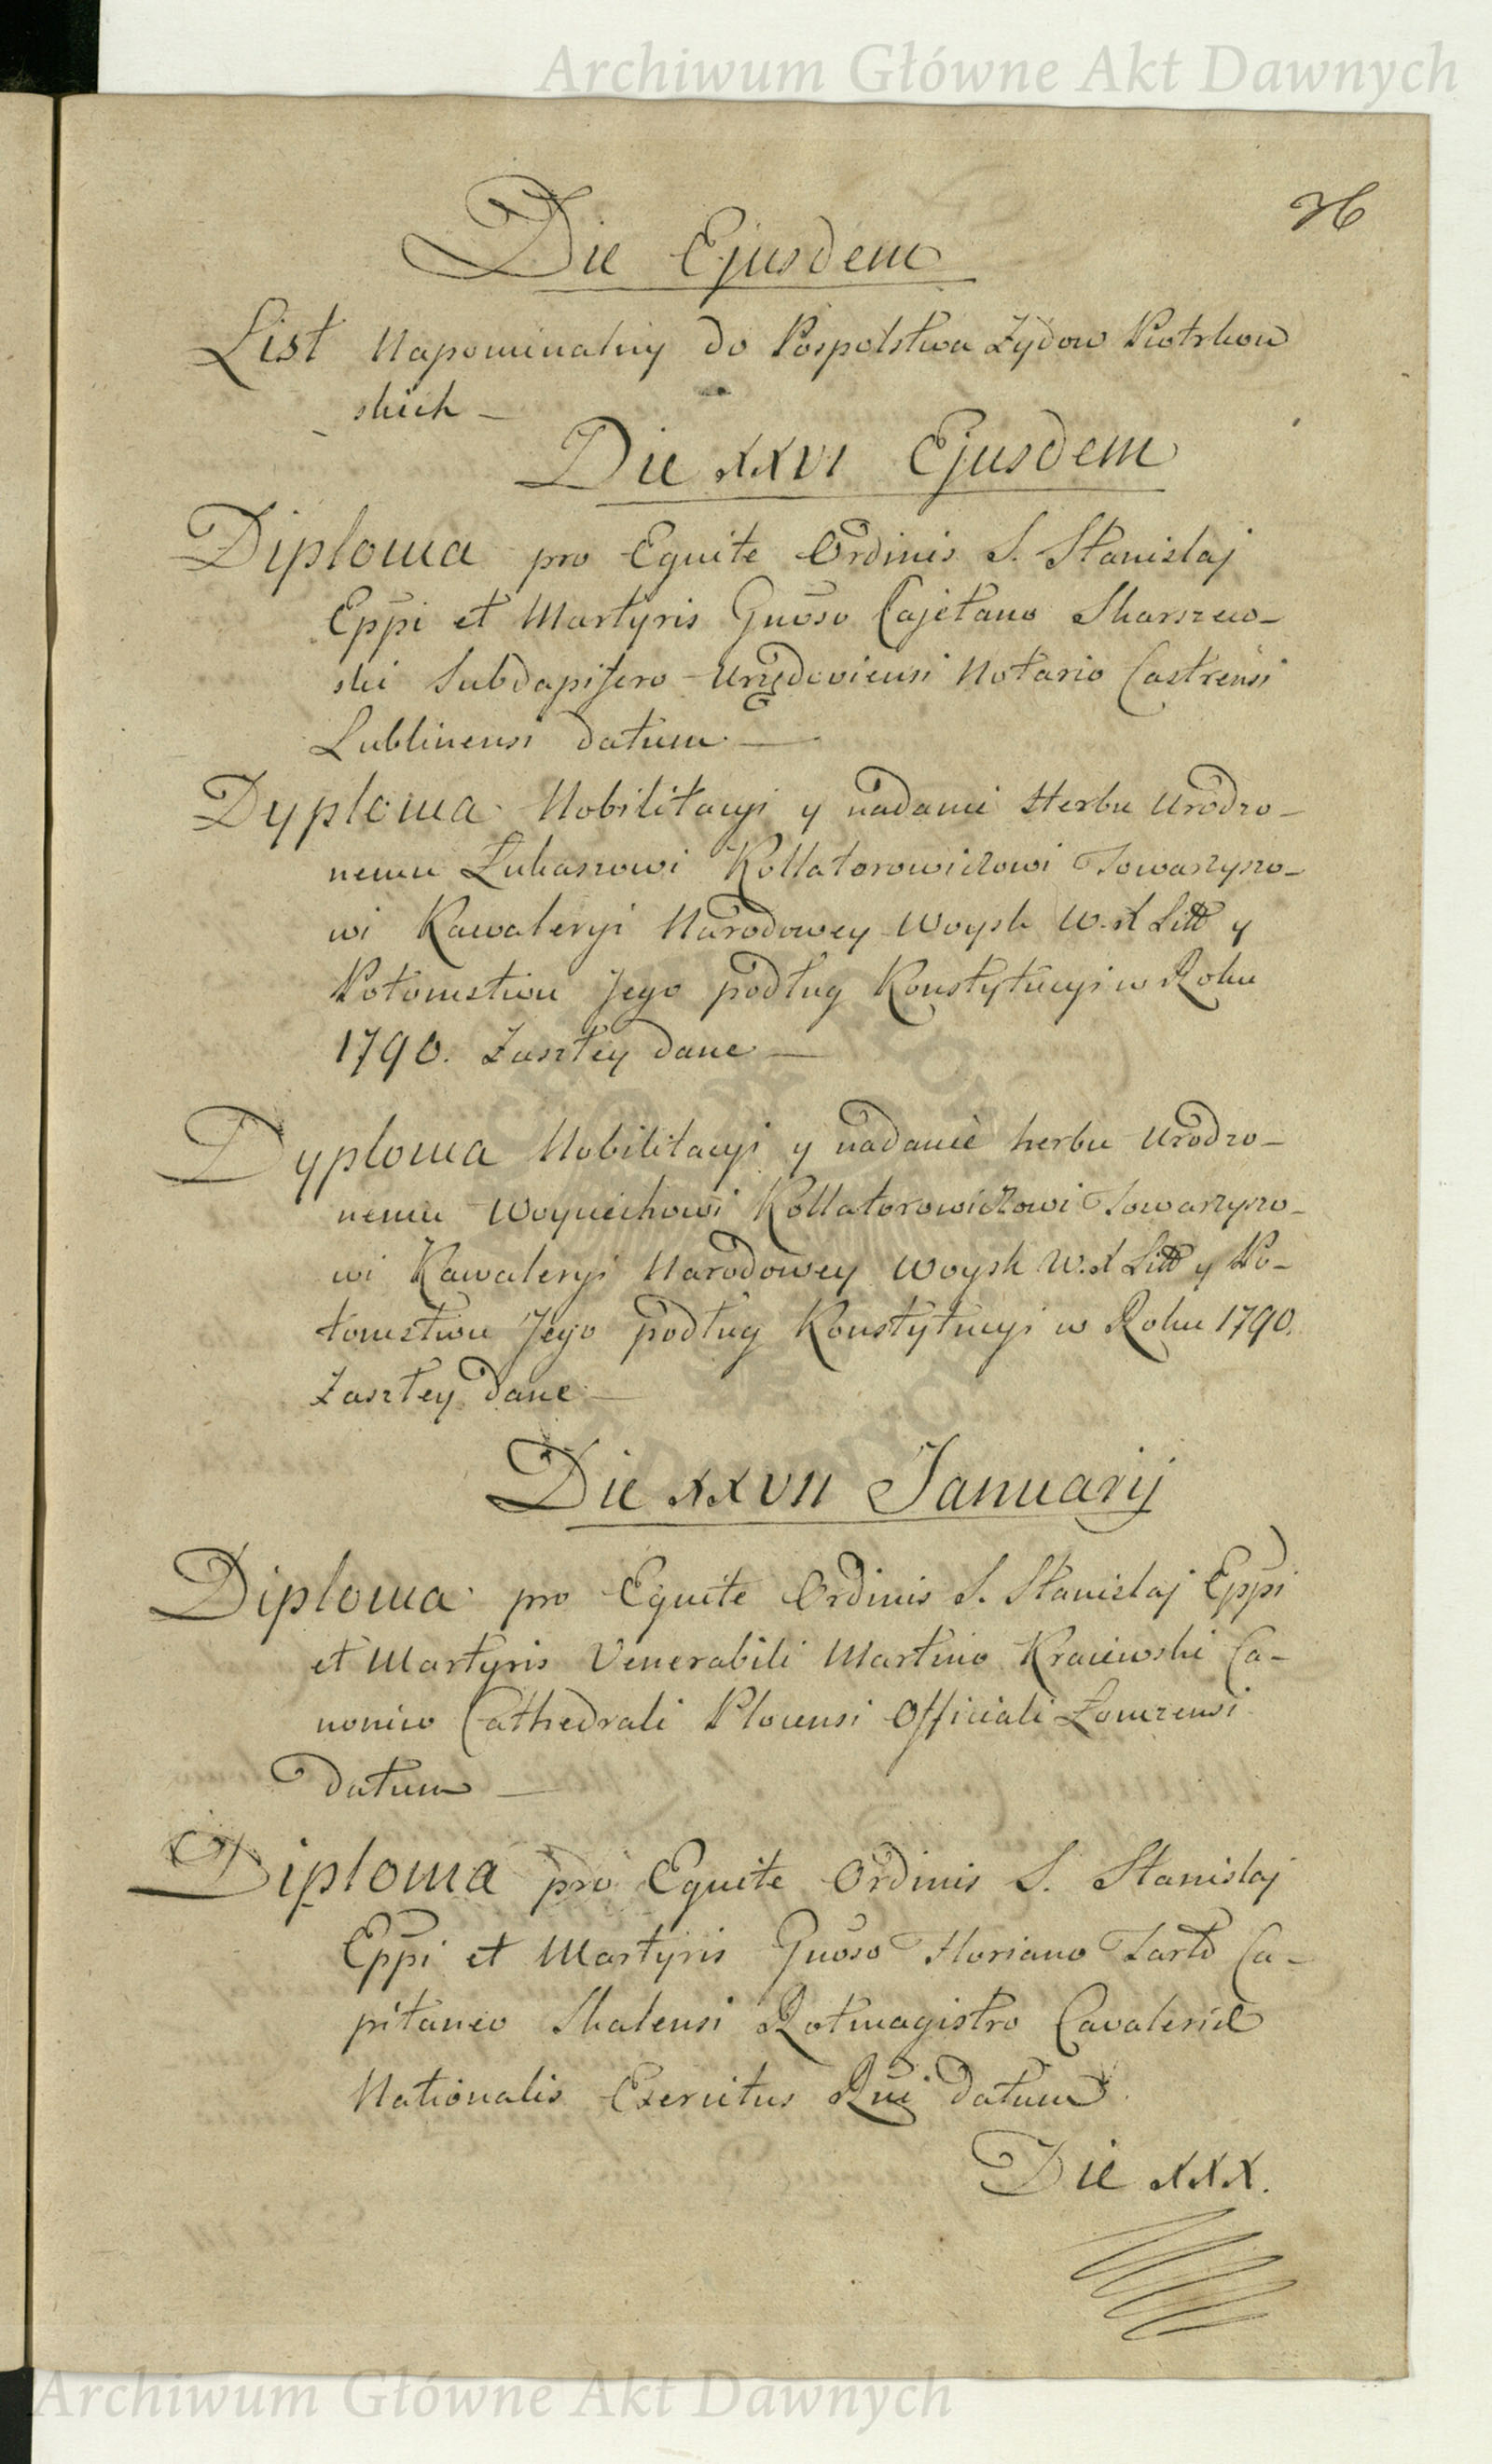 Archiwum Główne Akt Dawnych
36
Die Ejusdem
List Napominalny do Pospolstwa Żydow Piotrkow
skich —
Die XXVI Ejusdem
Diploma pro Equite Ordinis S. Stanislaj
Eppi et Martyris Gnoso Cajetano Skarszew-
ski Subdapifero Urzędoviensi Notario Castrensi
Lublinensi datum —
Dyploma Nobilitacyi y nadanie Herbu Urodzo-
nemu Łukaszowi Kollatorowiczowi Towarzyszo-
wi Kawaleryi Narodowey Woysk W. X Litt y
Potomstwu Jego podług Konstytucyi w Roku
1790. Zaszłey dane —
Dyploma Nobilitacyi y nadanie herbu Urodzo-
nemu Woyciechowi Kollatorowiczowi Towarzyszo-
wi Kawaleryi Narodowey Woysk W. X Litt y Po-
tomstwu Jego podług Konstytucyi w Roku 1790.
Zaszłey dane —
Die XXVII Januarij
Diploma pro Equite Ordinis S. Stanislaj Eppi
et Martyris Venerabili Martino Kraiewski Ca-
nonico Cathedrali Plocensi Officiali Łomzensi
datum —
Diploma pro Equite Ordinis S. Stanislaj
Eppi et Martyris Gnoso Floriano Tarło Ca-
pitaneo Skalensi Rotmagistro Cavaleriæ
Nationalis Exercitus Rni datum.
Die XXX.
Archiwum Główne Akt Dawnych